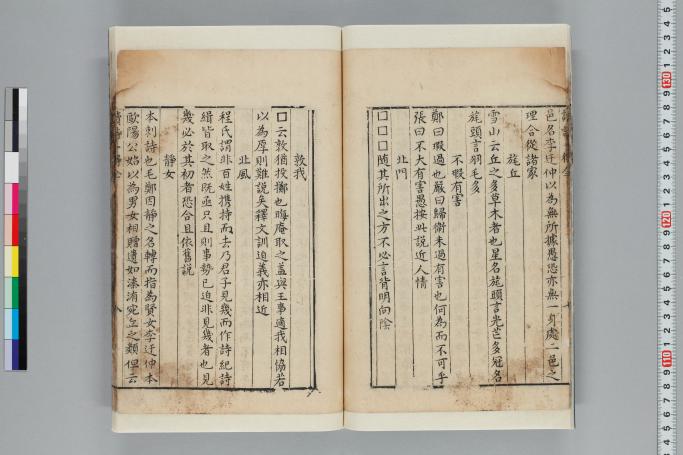 邑名李迂仲以為無所據愚恐亦無一身處二邑之
理合從諸家
旄丘
雪山云丘之多草木者也星名旄頭言光芒多冠名
旄頭言羽毛多
不瑕有害
鄭曰瑕過也嚴曰歸衛未過有害也何為而不可乎
張曰不大有害愚按此説近人情
北門
□□□随其所出之方不必言背明向陰
敦我
□云敦猶投擲也晦庵取之蓋與王事適我相協若
以為厚則難説矣釋文訓迫義亦相近
北風
程氏謂非百姓携持而去乃君子見幾而作詩紀詩
緝皆取之然既亟只且則事勢已迫非見幾者也見
幾必於其初者恐合且依舊説
静女
本刺詩也毛鄭因静之名轉而指為賢女李迂仲本
歐陽公始以為男女相贈遺如溱洧宛丘之類但云